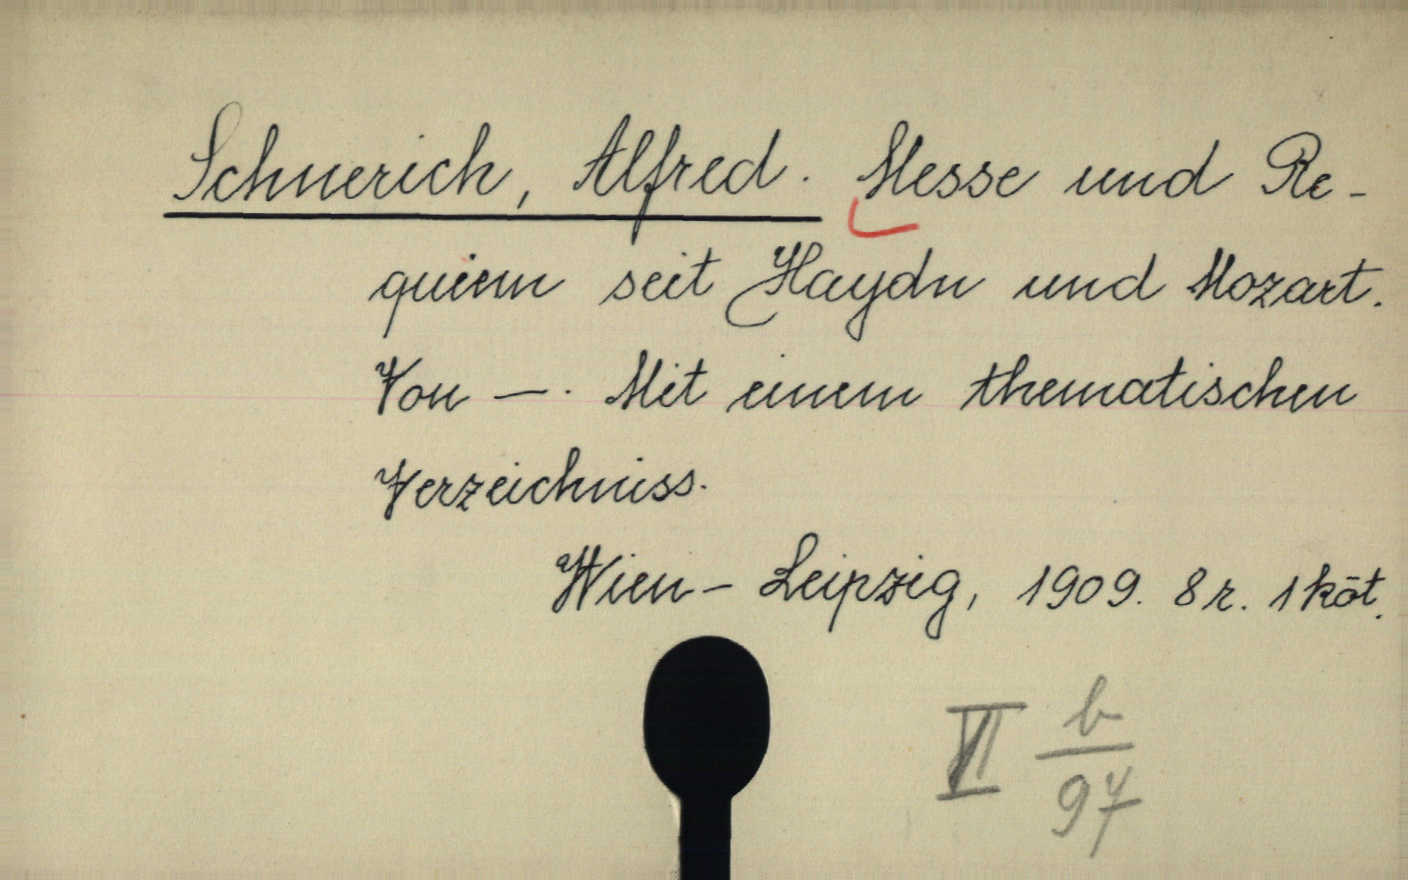 Schnerich, Alfred. Messe und Re-
quiem seit Haydn und Mozart.
Von —. Mit einem thematischen
Verzeichniss.
Wien - Leipzig, 1909. 8 r. 1 köt.
VI b/97